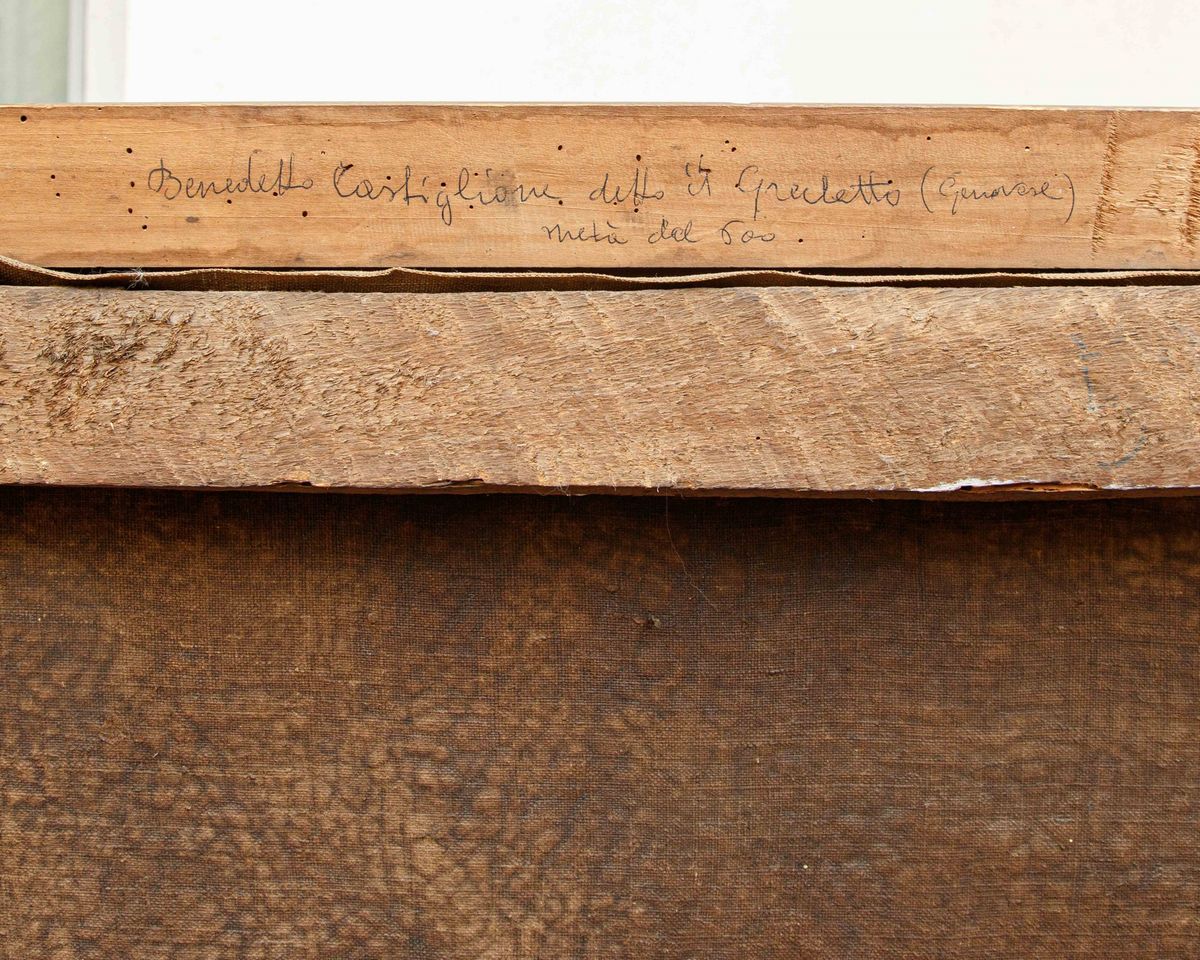 Benedetto Castiglione detto il Grechetto (Genovese)
metà del 600